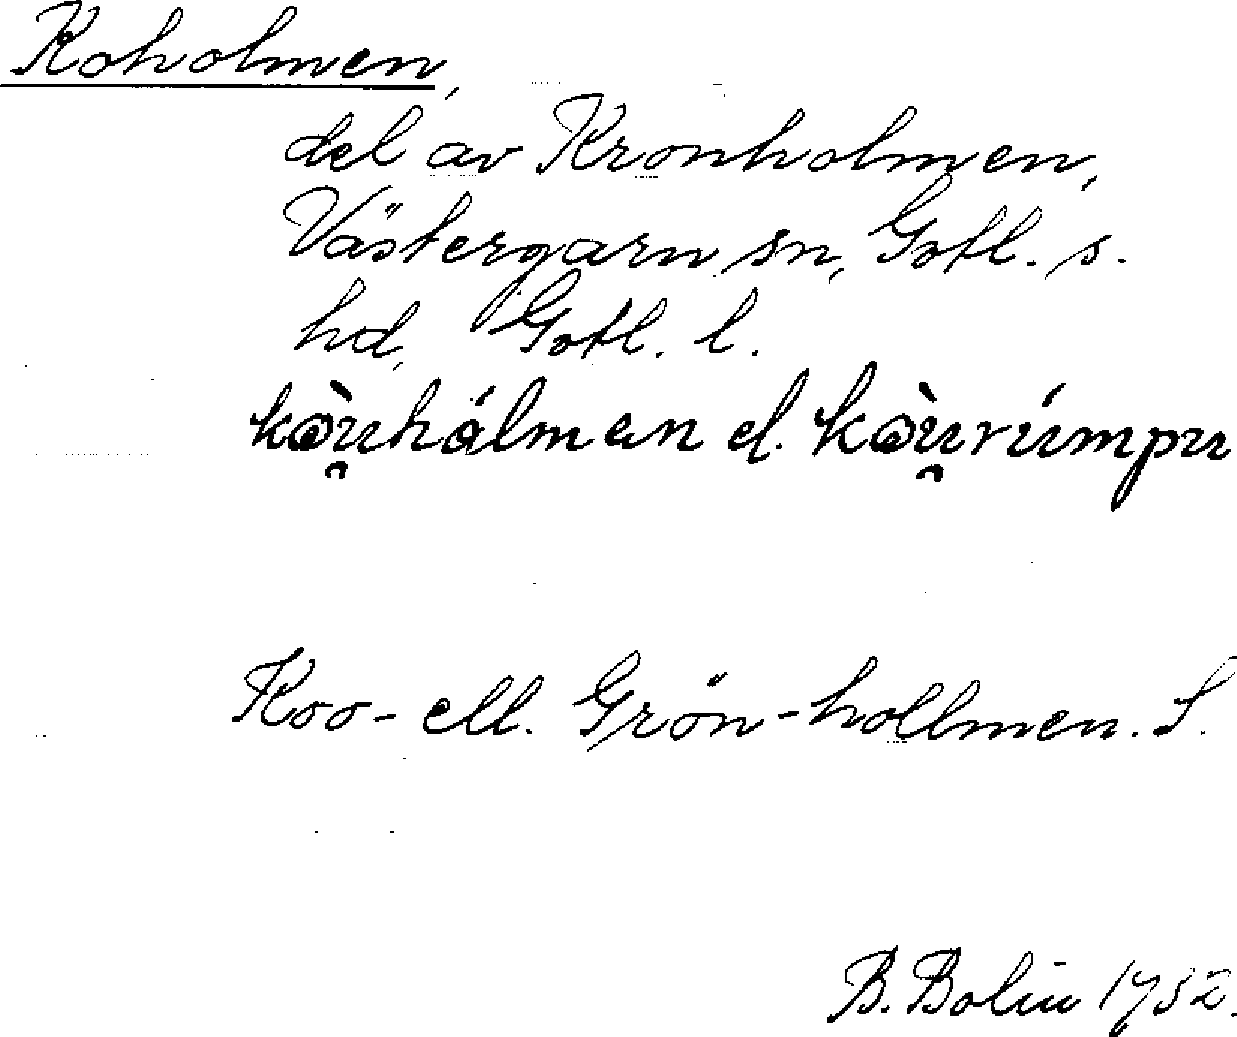 Koholmen,
del av Kronholmen,
Västergarn sn, Gotl. s.
hd, Gotl. l.
kə̀u̯hálmen el. kə̀u̯rúmpu
Koo- ell. Grön-hollmen. S.
B. Bolin 1932.